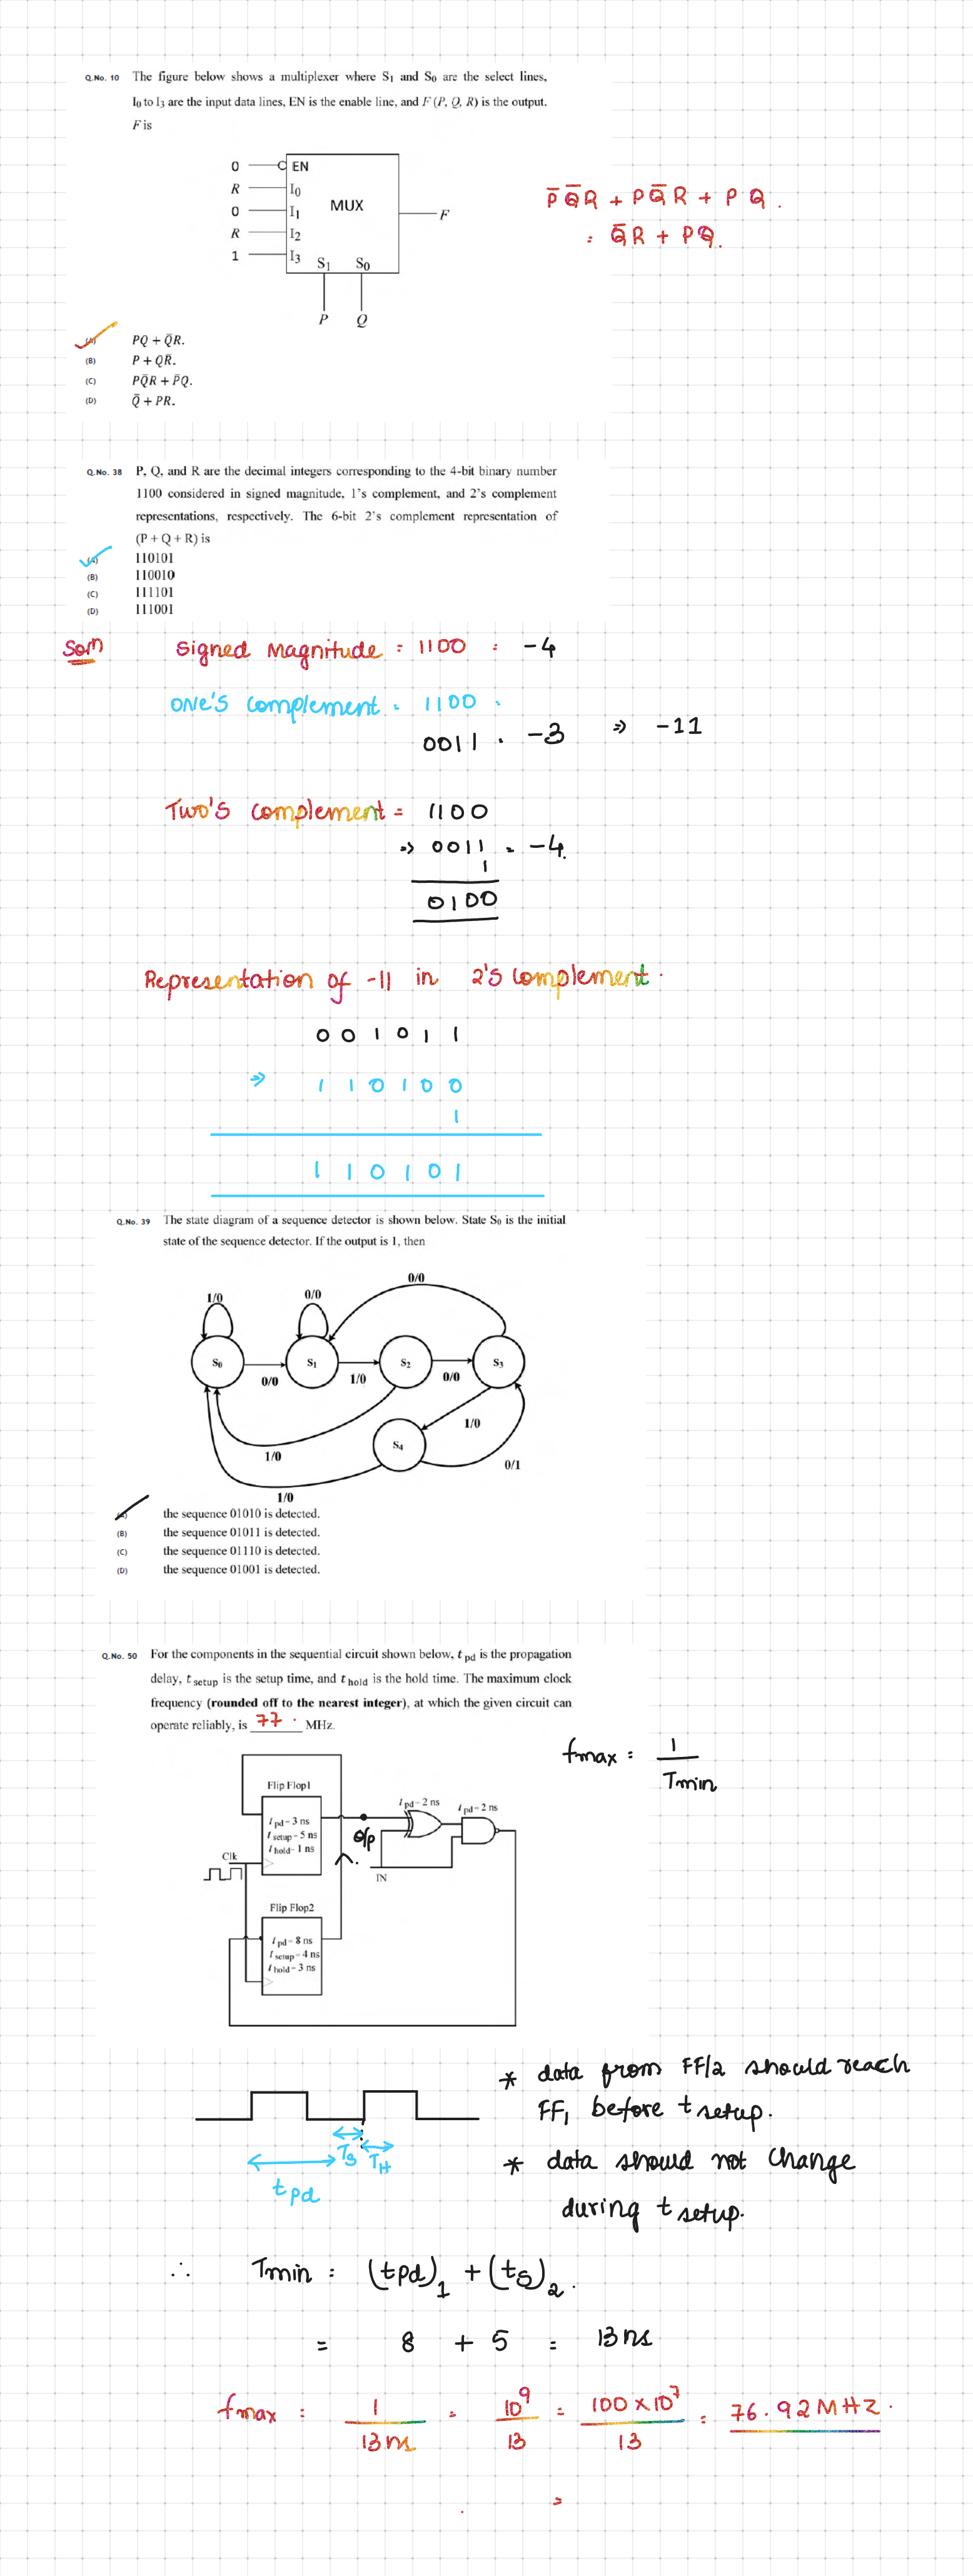 Q.No. 10 The figure below shows a multiplexer where S₁ and S₀ are the select lines,
I₀ to I₃ are the input data lines, EN is the enable line, and F (P, Q, R) is the output.
F is
0 EN
R I₀
0 I₁ MUX F
R I₂
1 I₃ S₁ S₀
P Q
P̅Q̅R + PQ̅R + PQ.
= Q̅R + PQ.
(A) PQ + Q̅R.
(B) P + QR̅.
(C) PQ̅R + P̅Q.
(D) Q̅ + PR.
Q.No. 38 P, Q, and R are the decimal integers corresponding to the 4-bit binary number
1100 considered in signed magnitude, 1's complement, and 2's complement
representations, respectively. The 6-bit 2's complement representation of
(P + Q + R) is
(A) 110101
(B) 110010
(C) 111101
(D) 111001
Soln Signed Magnitude = 1100 = -4
ONE'S Complement = 1100 =
0011 = -3 ⇒ -11
Two's complement = 1100
⇒ 0011 = -4.
1
0100
Representation of -11 in 2's complement.
001011
⇒ 110100
1
110101
Q.No. 39 The state diagram of a sequence detector is shown below. State S₀ is the initial
state of the sequence detector. If the output is 1, then
0/0
1/0 0/0
S₀ S₁ S₂ S₃
0/0 1/0 0/0
1/0
S₄
1/0 0/1
1/0
(A) the sequence 01010 is detected.
(B) the sequence 01011 is detected.
(C) the sequence 01110 is detected.
(D) the sequence 01001 is detected.
Q.No. 50 For the components in the sequential circuit shown below, t pd is the propagation
delay, t setup is the setup time, and t hold is the hold time. The maximum clock
frequency (rounded off to the nearest integer), at which the given circuit can
operate reliably, is 77. MHz.
fmax = 1
Tmin
Flip Flop1
t pd = 3 ns
t setup = 5 ns
t hold = 1 ns
Clk
t pd = 2 ns
t pd = 2 ns
o/p
IN
Flip Flop2
t pd = 8 ns
t setup = 4 ns
t hold = 3 ns
* data from FF/2 should reach
FF₁ before t setup.
* data should not change
during t setup.
Ts TH
tpd
∴ Tmin = (tpd)₁ + (ts)₂.
= 8 + 5 = 13 ns
fmax = 1/13ns = 10⁹/13 = 100×10⁷/13 = 76.92 MHZ.
=